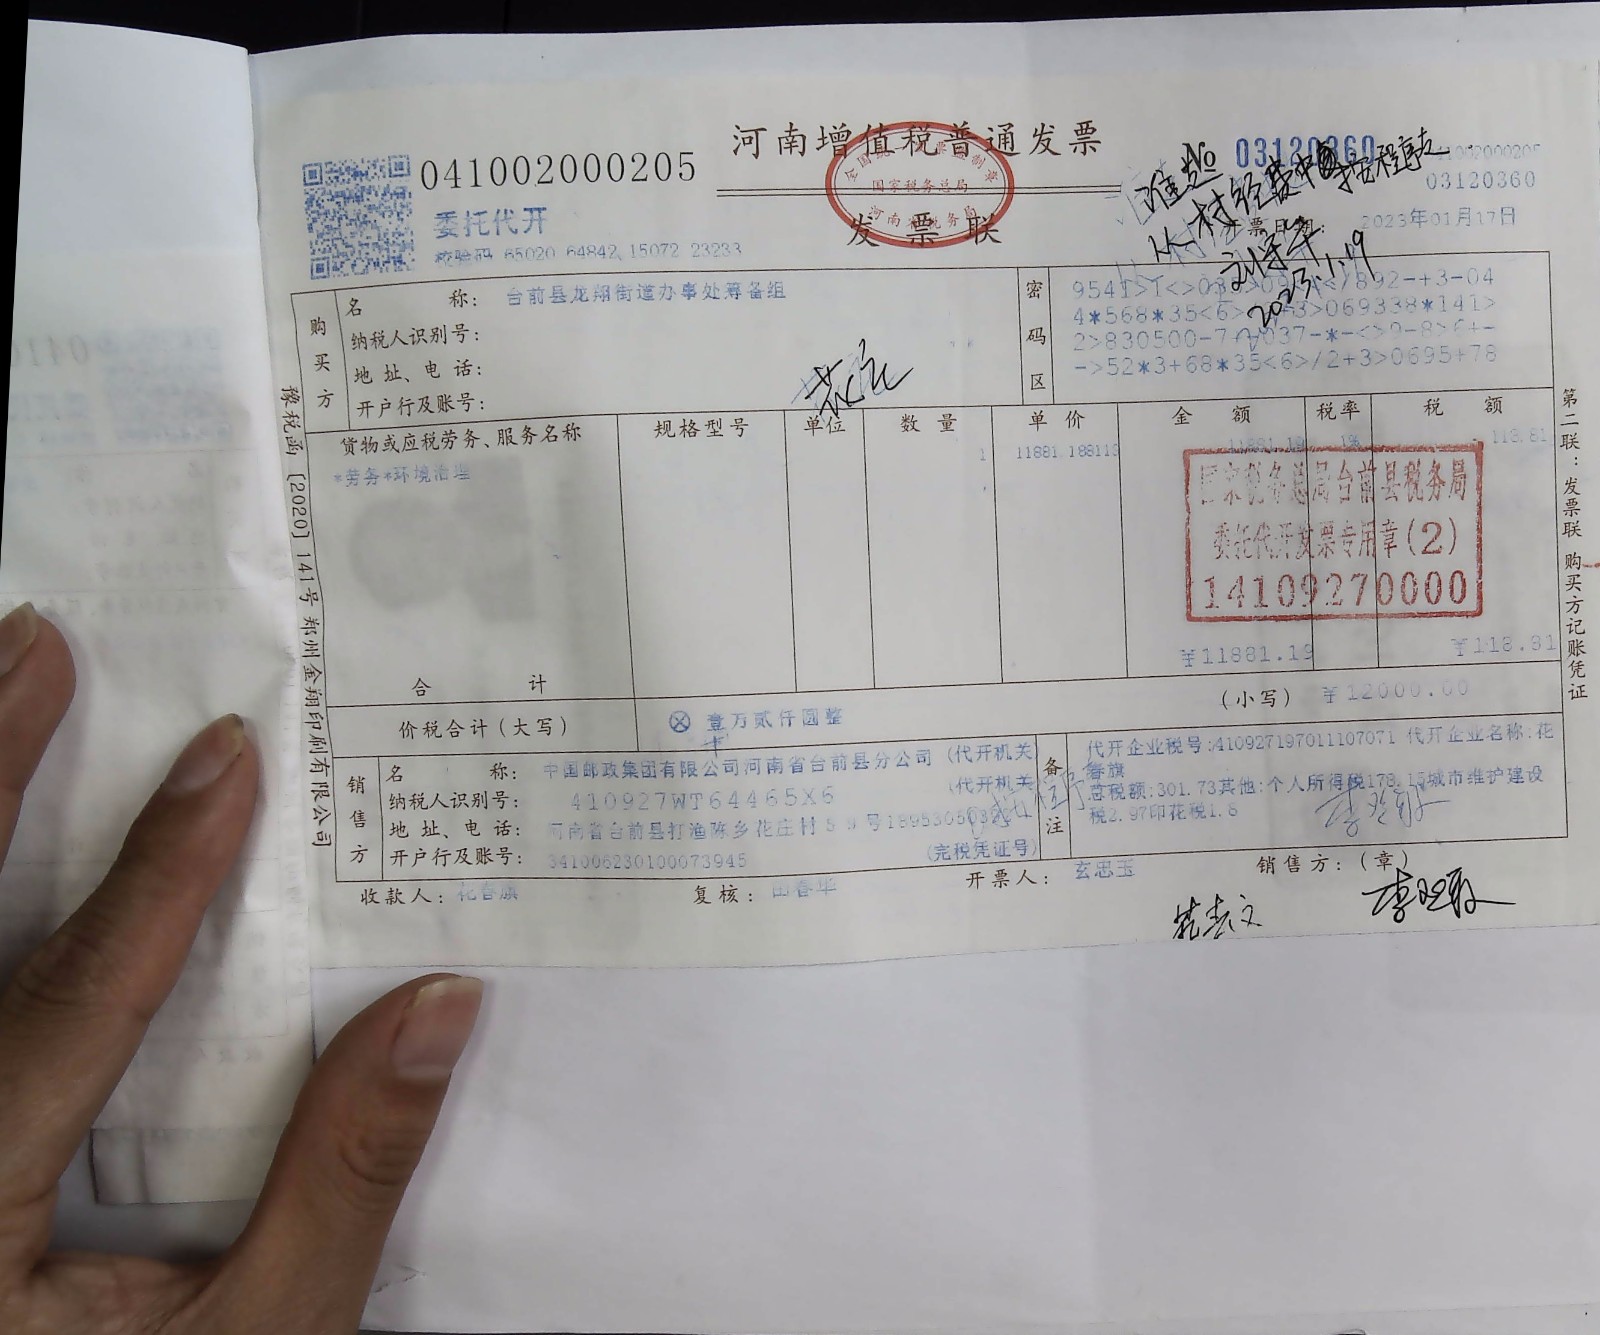 河南增值税普通发票
发票联
全国统一发票监制章
国家税务总局
河南省税务局
041002000205
委托代开
校验码 65020 64842 15072 23233
№ 03120360
041002000205
03120360
开票日期: 2023年01月17日
准照
从村经费中按程序支
2023.1.19
购买方
名称: 台前县龙翔街道办事处筹备组
纳税人识别号:
地址、电话:
开户行及账号:
密码区
4*568*35<6>
069338*141>
->52*3+68*35<6>/2+3>0695+78
货物或应税劳务、服务名称 规格型号 单位 数量 单价 金额 税率 税额
*劳务*环境治理 1 11881.188119 11881.19 1% 118.81
国家税务总局台前县税务局
委托代开发票专用章(2)
14109270000
合计 ¥11881.19 ¥118.81
价税合计(大写) ⊗ 壹万贰仟圆整 (小写) ¥12000.00
销售方
名称: 中国邮政集团有限公司河南省台前县分公司 (代开机关
纳税人识别号: 410927WT64465X6 (代开机关
地址、电话: 河南省台前县打渔陈乡花庄村59号
开户行及账号: 341006230100073945 (完税凭证号)
备注
代开企业税号:410927197011107071 代开企业名称:花
春旗
总税额:301.73其他:个人所得税178.15城市维护建设
税2.97印花税1.8
收款人: 花春旗 复核: 田春华 开票人: 玄忠玉 销售方:(章)
豫税函 [2020] 141号 郑州金翔印刷有限公司
第二联:发票联 购买方记账凭证